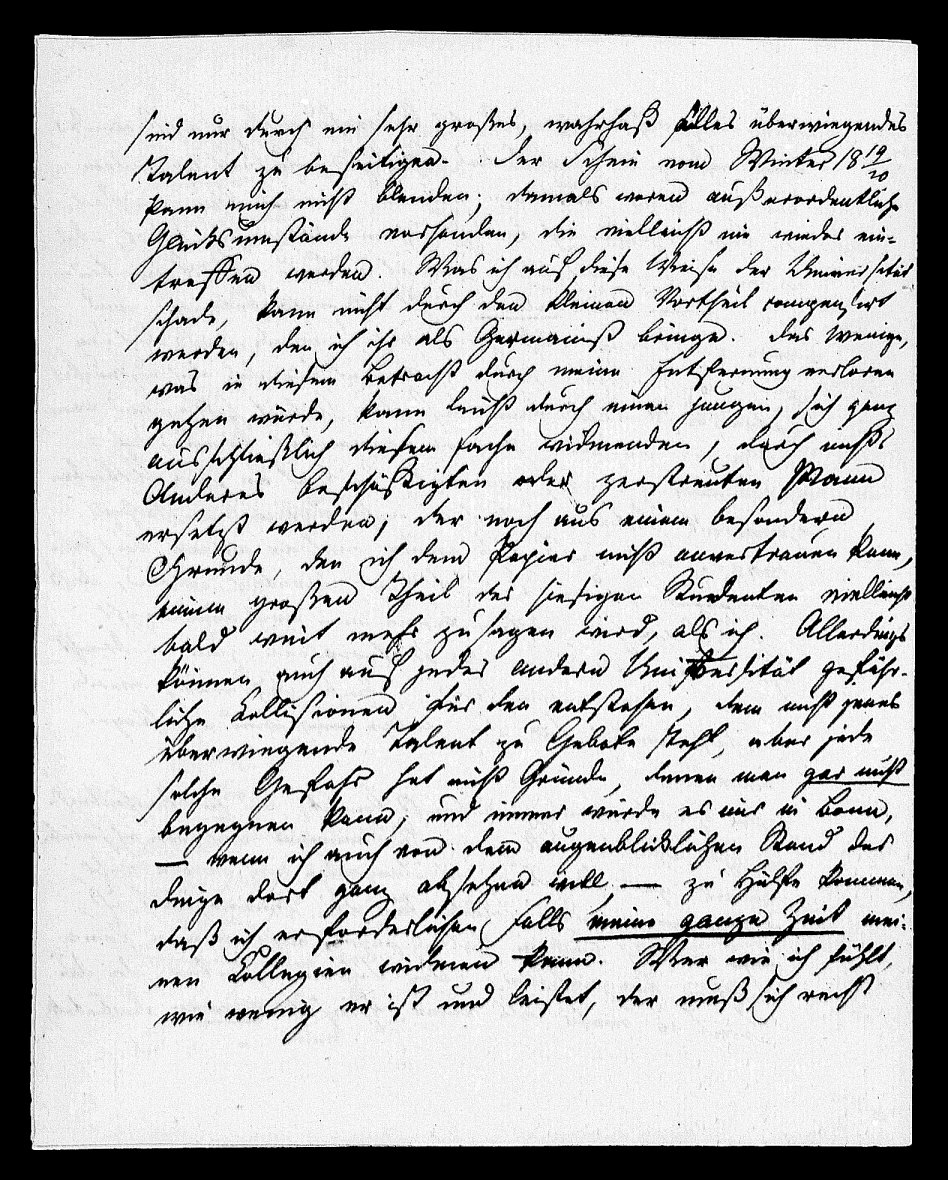 sind nur durch ein sehr großes, wahrhaft Alles überwiegendes
Talent zu beseitigen. Der Schein vom Winter 18 19/20
kann mich nicht blenden; damals waren außerordentliche
Glücksumstände vorhanden, die vielleicht nie wieder ein-
treffen werden. Was ich auf diese Weise der Universität
schade, kann nicht durch den kleinen Vortheil compensirt
werden, den ich ihr als Germanist bringe. Das Wenige,
was in diesem Betracht durch meine Entfernung verloren
gehen würde, kann leicht durch einen jungen, sich ganz
ausschließlich diesem Fache widmenden, durch nichts
Anderes beschäftigten oder zerstreuten Mann
ersetzt werden; der noch aus einem besondern
Grunde, den ich dem Papier nicht anvertrauen kann,
einem großen Theil der hiesigen Studenten vielleicht
bald weit mehr zusagen wird, als ich. Allerdings
können auch auf jeder andern Universität gefähr-
liche Collisionen für den entstehen, dem nicht jenes
überwiegende Talent zu Gebote steht, aber jede
solche Gefahr hat nicht Gründe, denen man gar nicht
begegnen kann; und immer würde es mir in Bonn,
— wenn ich auch von dem augenblicklichen Stand der
Dinge dort ganz absehen will, — zu Hülfe kommen,
daß ich erforderlichen Falls meine ganze Zeit mei-
nen Collegien widmen kann. Wer wie ich fühlt,
wie wenig er ist und leistet, der muß sich recht